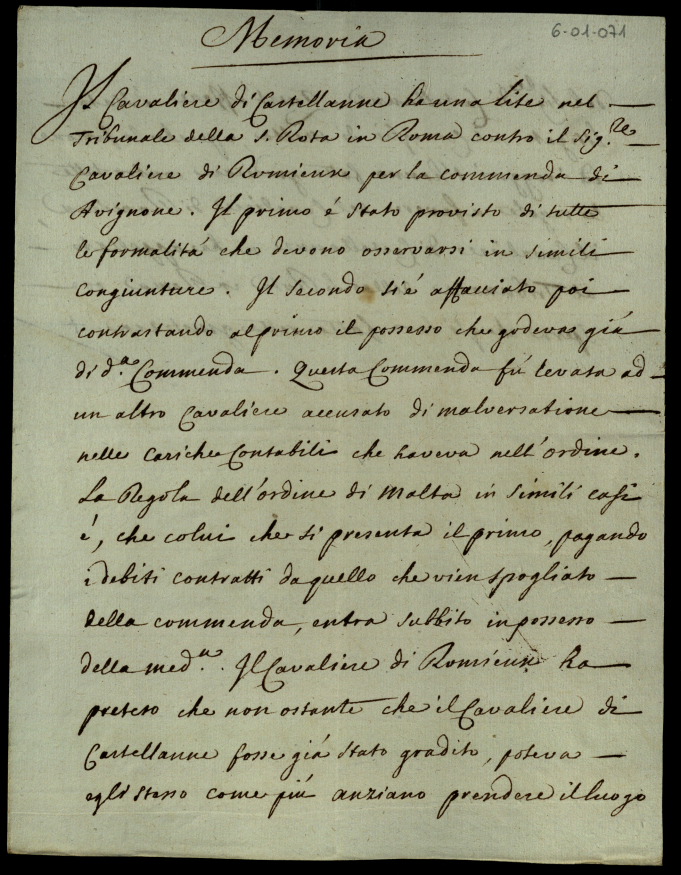 6-01-071
Memoria
Il Cavaliere di Castellanne ha una lite nel
Tribunale della S. Rota in Roma contro il Sig.re
Cavaliere di Romieux per la commenda di
Avignone. Il primo é stato provisto di tutte
le formalitá che devono osservarsi in simili
congiunture. Il secondo si é affacciato poi
contrastando al primo il possesso che godeva giá
di d.a Commenda. Questa Commenda fú levata ad
un altro Cavaliere accusato di malversatione
nelle cariche Contabili che haveva nell'ordine.
La Regola dell'ordine di Malta in simili casi
é, che colui che si presenta il primo, pagando
i debiti contratti da quello che vien spogliato
della commenda, entra subbito in possesso
della med.a. Il Cavaliere di Romieux ha
preteso che non ostante che il Cavaliere di
Castellanne fosse giá stato gradito, poteva
egli stesso come piú anziano prendere il luogo